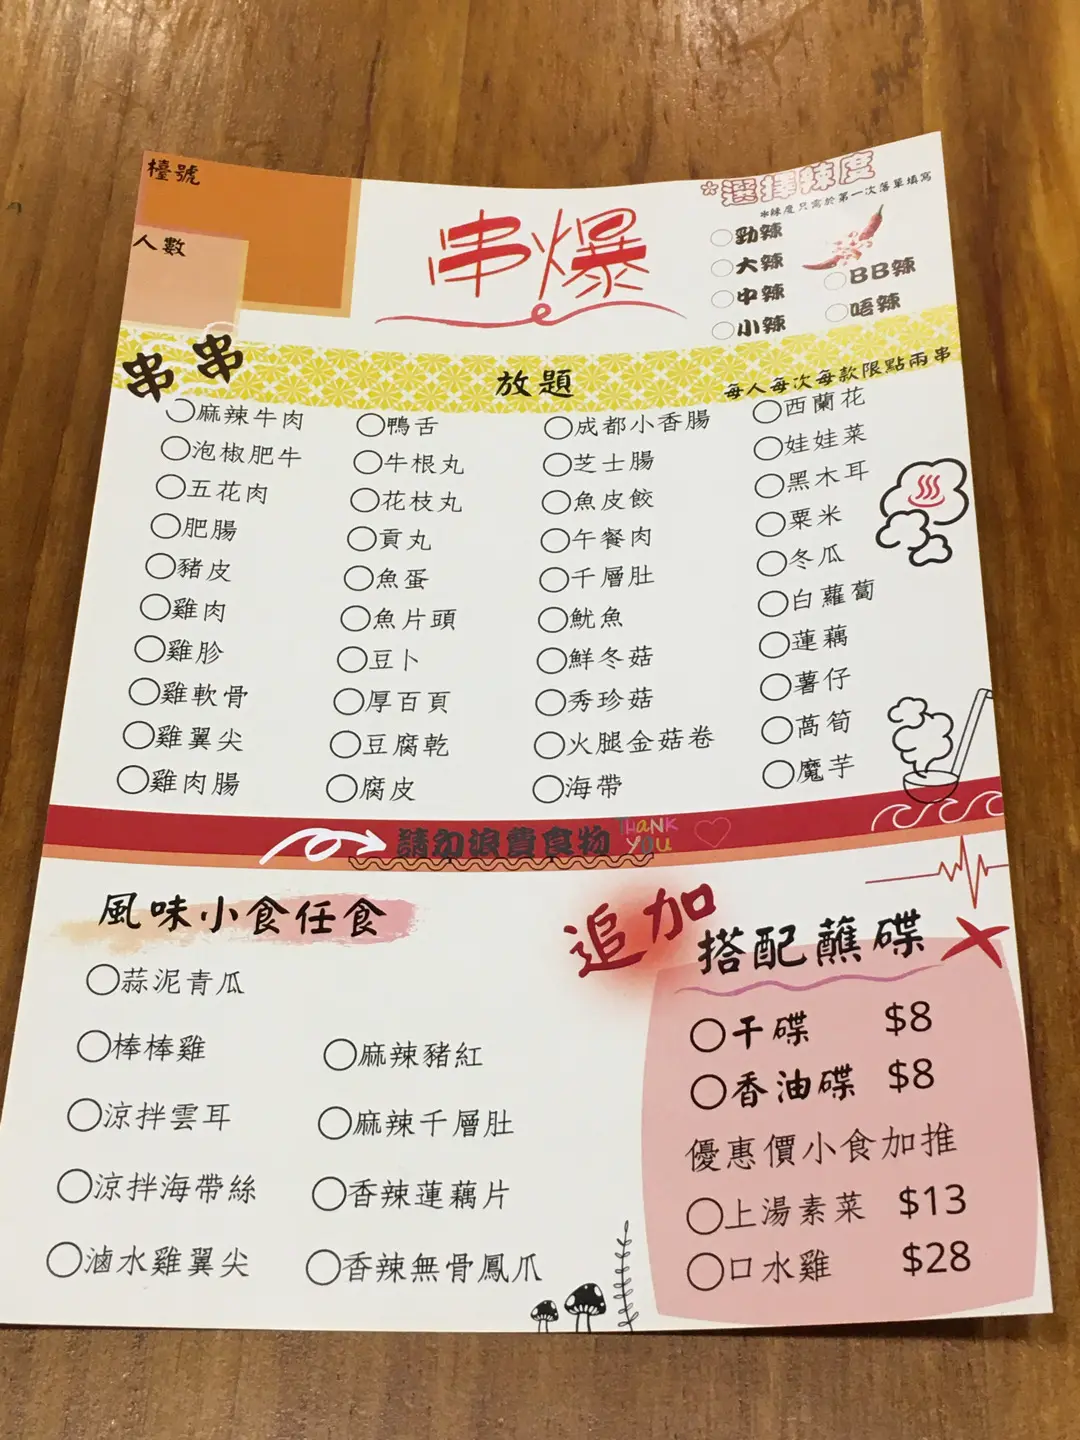 檯號
人數
串爆
*選擇辣度
*辣度只需於第一次落單填寫
勁辣
大辣
中辣
小辣
BB辣
唔辣
串串
放題
每人每次每款限點兩串
麻辣牛肉
泡椒肥牛
五花肉
肥腸
豬皮
雞肉
雞胗
雞軟骨
雞翼尖
雞肉腸
鴨舌
牛根丸
花枝丸
貢丸
魚蛋
魚片頭
豆卜
厚百頁
豆腐乾
腐皮
成都小香腸
芝士腸
魚皮餃
午餐肉
千層肚
魷魚
鮮冬菇
秀珍菇
火腿金菇卷
海帶
西蘭花
娃娃菜
黑木耳
粟米
冬瓜
白蘿蔔
蓮藕
薯仔
萵筍
魔芋
請勿浪費食物
THANK YOU
風味小食任食
蒜泥青瓜
棒棒雞
涼拌雲耳
涼拌海帶絲
滷水雞翼尖
麻辣豬紅
麻辣千層肚
香辣蓮藕片
香辣無骨鳳爪
追加
搭配蘸碟
干碟 $8
香油碟 $8
優惠價小食加推
上湯素菜 $13
口水雞 $28